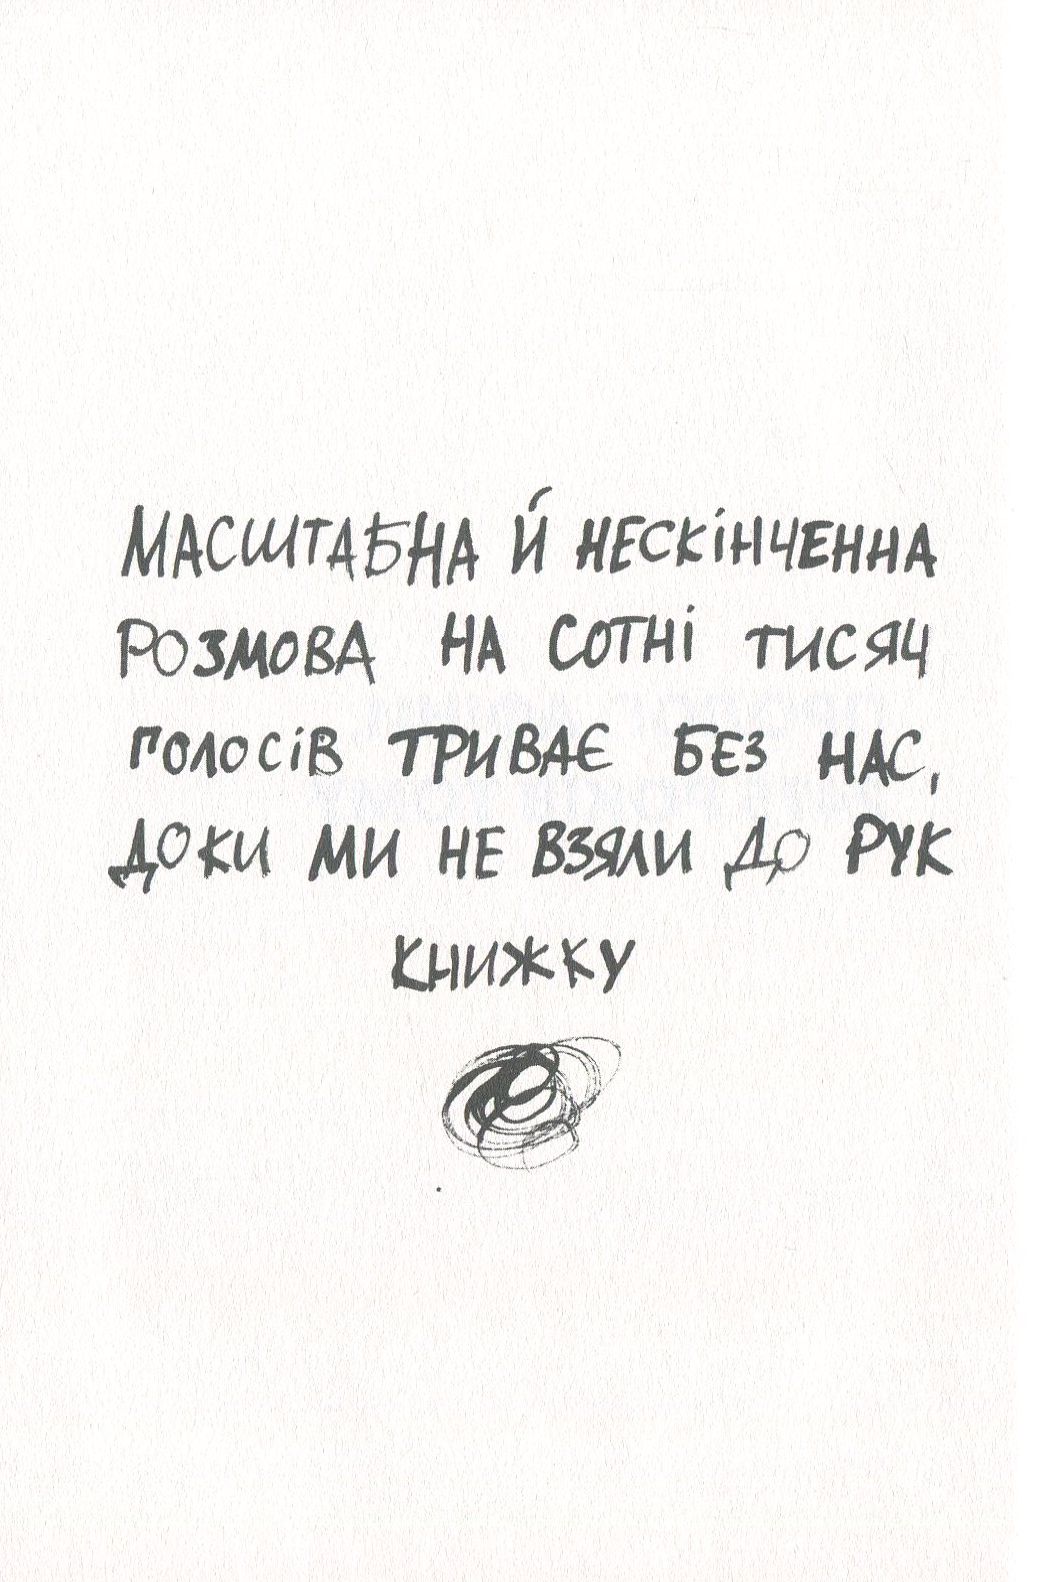 МАСШТАБНА Й НЕСКІНЧЕННА
РОЗМОВА НА СОТНІ ТИСЯЧ
ГОЛОСІВ ТРИВАЄ БЕЗ НАС,
ДОКИ МИ НЕ ВЗЯЛИ ДО РУК
КНИЖКУ